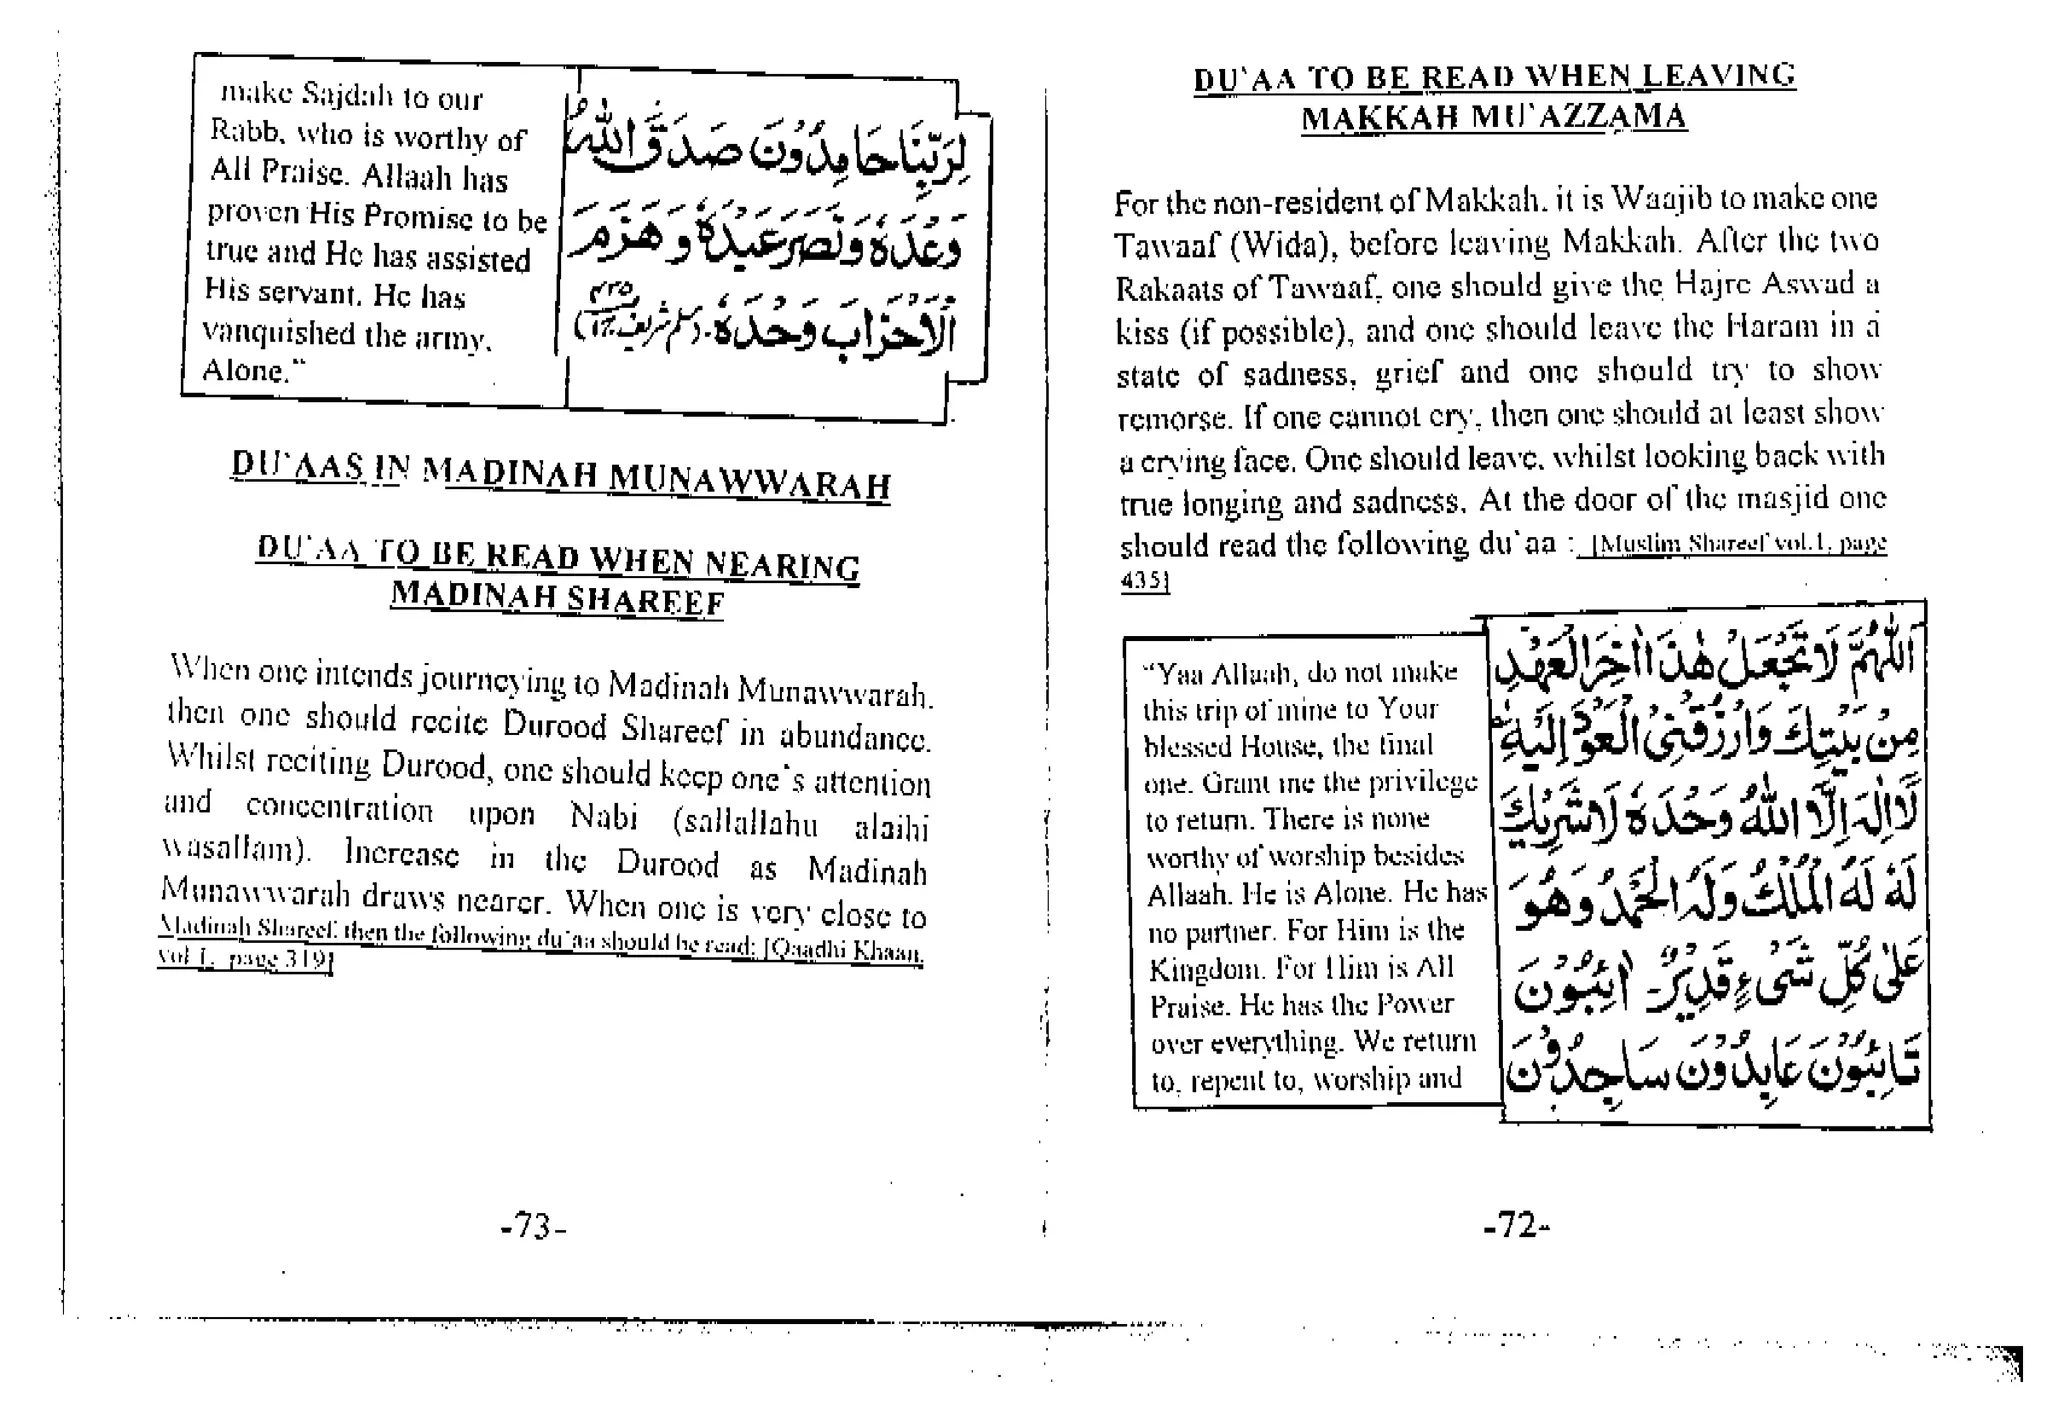 DU'AA TO BE READ WHEN LEAVING
MAKKAH MU'AZZAMA
For the non-resident of Makkah. it is Waajib to make one
Tawaaf (Wida), before leaving Makkah. After the two
Rakaats of Tawaaf, one should give the Hajre Aswad a
kiss (if possible), and one should leave the Haram in a
state of sadness, grief and one should try to show
remorse. If one cannot cry, then one should at least show
a crying face. One should leave, whilst looking back with
true longing and sadness. At the door of the masjid one
should read the following du'aa : [Muslim Shareef vol.1, page
435]
"Yaa Allaah, do not make
this trip of mine to Your
blessed House, the final
one. Grant me the privilege
to return. There is none
worthy of worship besides
Allaah. He is Alone. He has
no partner. For Him is the
Kingdom. For Him is All
Praise. He has the Power
over everything. We return
to, repent to, worship and
اَللّٰهُمَّ لَا تَجْعَلْ هٰذَا اٰخِرَ الْعَهْدِ
مِنْ بَيْتِكَ وَارْزُقْنِى الْعَوْدَ اِلَيْهِ
لَا اِلٰهَ اِلَّا اللهُ وَحْدَهٗ لَا شَرِيْكَ
لَهٗ لَهُ الْمُلْكُ وَلَهُ الْحَمْدُ وَهُوَ
عَلٰى كُلِّ شَىْءٍ قَدِيْرٌ۔ اٰئِبُوْنَ
تَائِبُوْنَ عَابِدُوْنَ سَاجِدُوْنَ
-72-
make Sajdah to our
Rabb, who is worthy of
All Praise. Allaah has
proven His Promise to be
true and He has assisted
His servant. He has
vanquished the army,
Alone."
لِرَبِّنَا حَامِدُوْنَ صَدَقَ اللهُ
وَعْدَهٗ وَنَصَرَ عَبْدَهٗ وَهَزَمَ
الْاَحْزَابَ وَحْدَهٗ۔ (مسلم شریف
DU'AAS IN MADINAH MUNAWWARAH
DU'AA TO BE READ WHEN NEARING
MADINAH SHAREEF
When one intends journeying to Madinah Munawwarah.
then one should recite Durood Shareef in abundance.
Whilst reciting Durood, one should keep one's attention
and concentration upon Nabi (sallallahu alaihi
wasallam). Increase in the Durood as Madinah
Munawwarah draws nearer. When one is very close to
Madinah Shareef, then the following du'aa should be read: [Qaadhi Khaan,
vol 1, page 319]
-73-